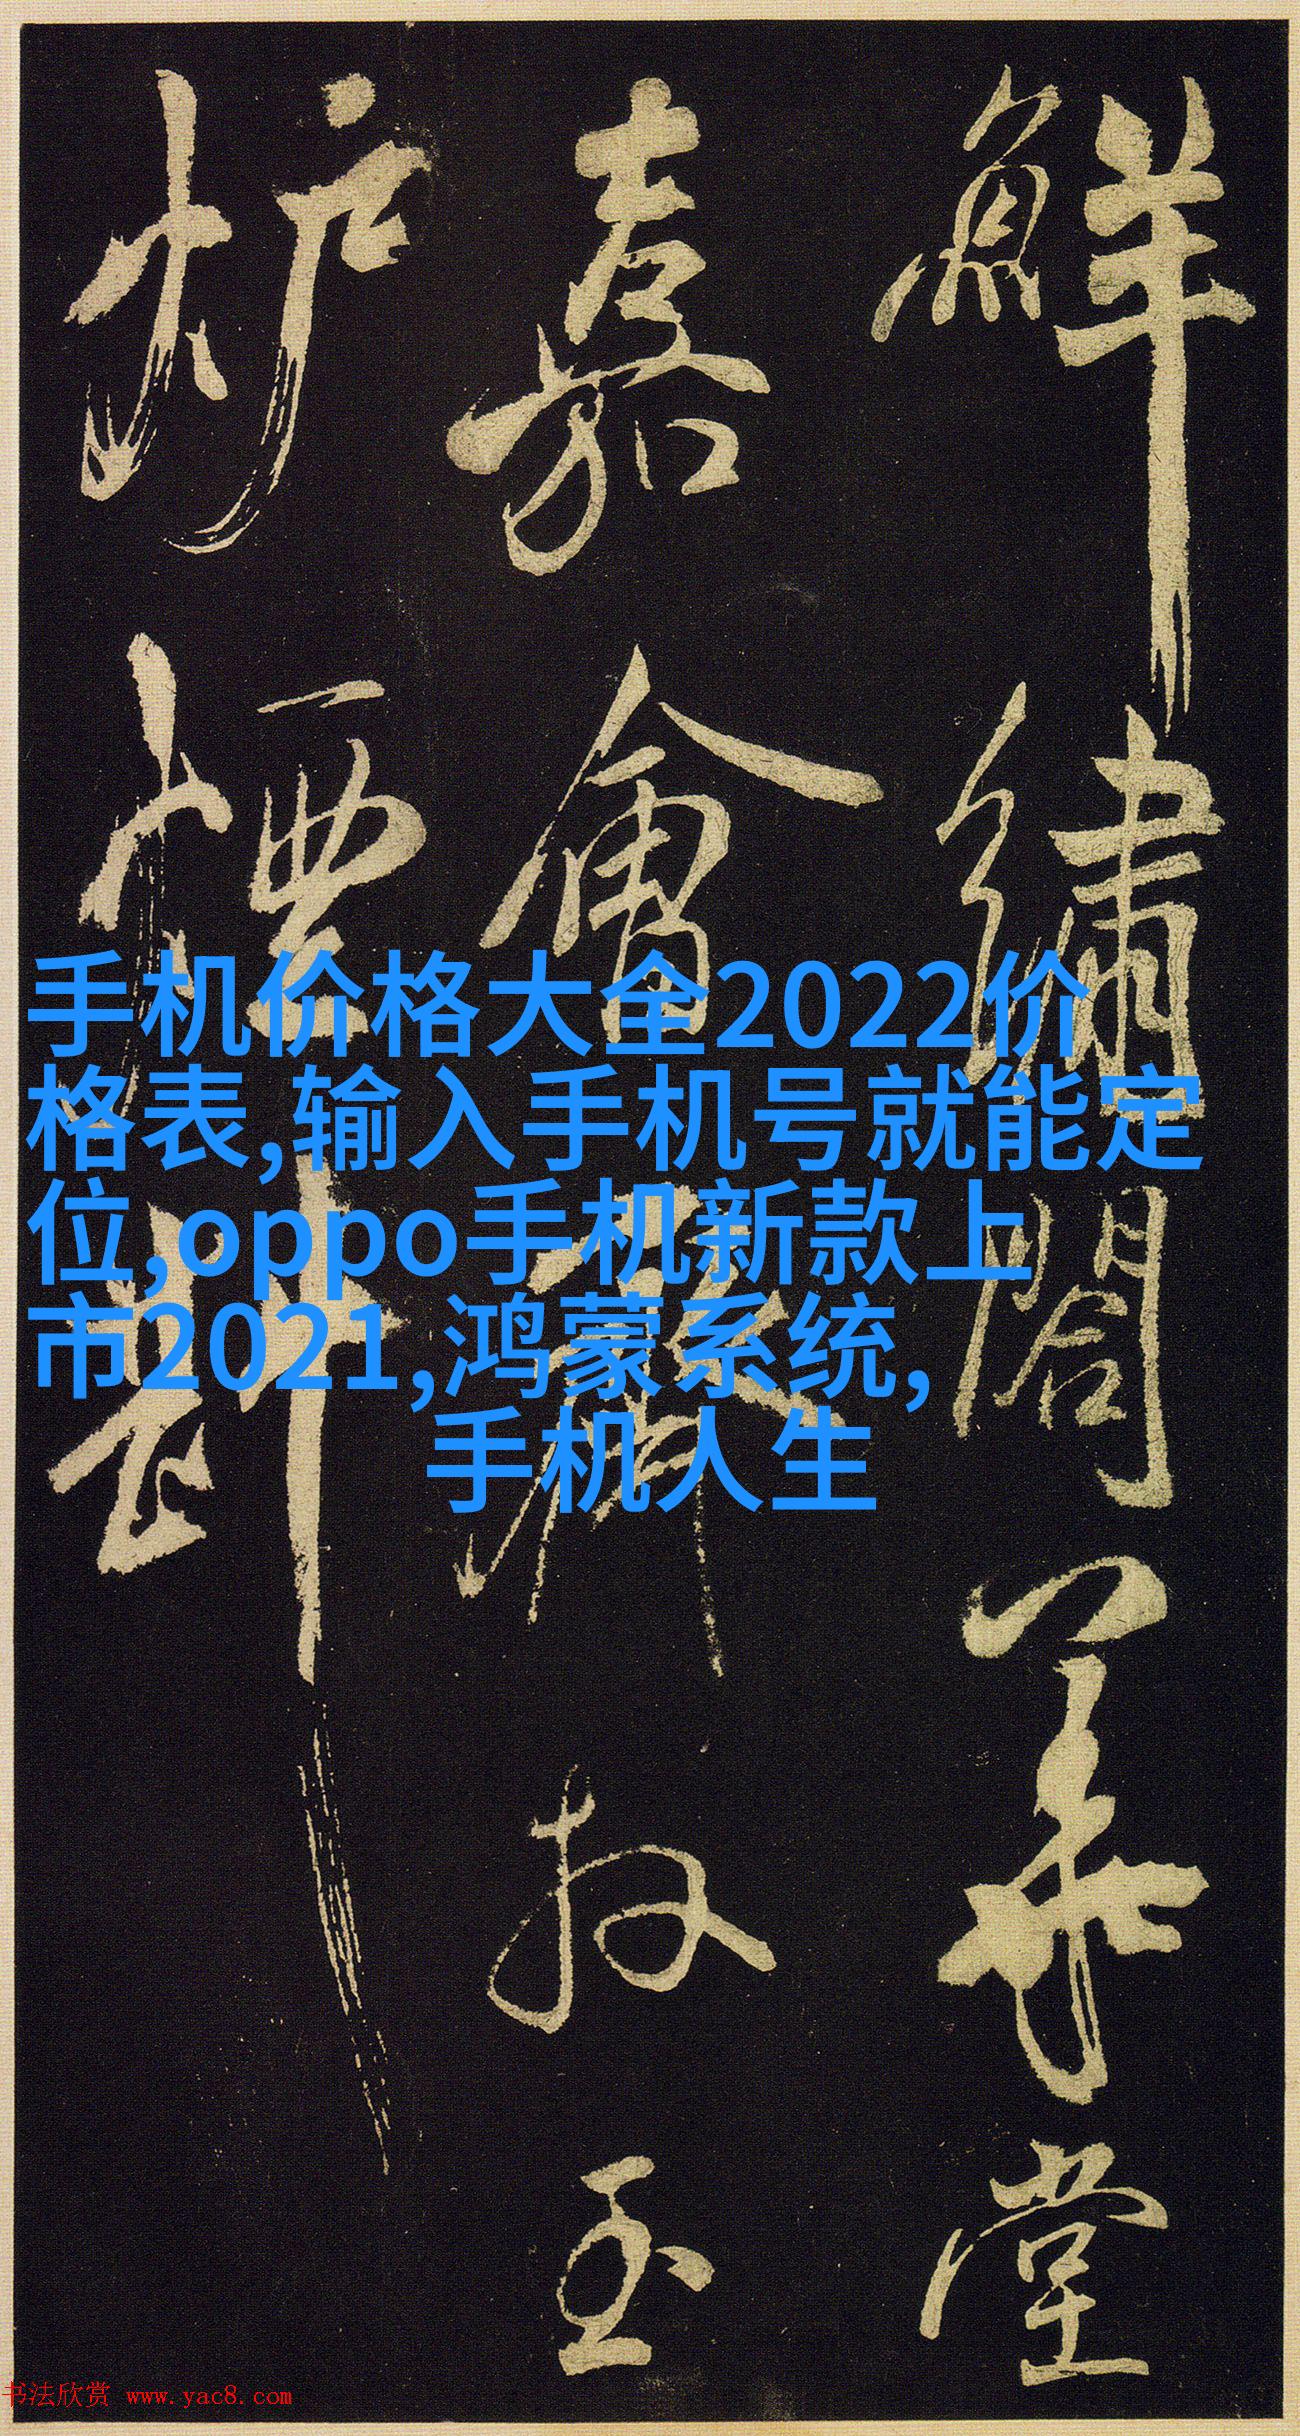 鮮繡閣華堂
嘉會
手机价格大全2022价
格表,输入手机号就能定
位,oppo手机新款上
市2021,鸿蒙系统,
手机人生
书法欣赏 www.yac8.com